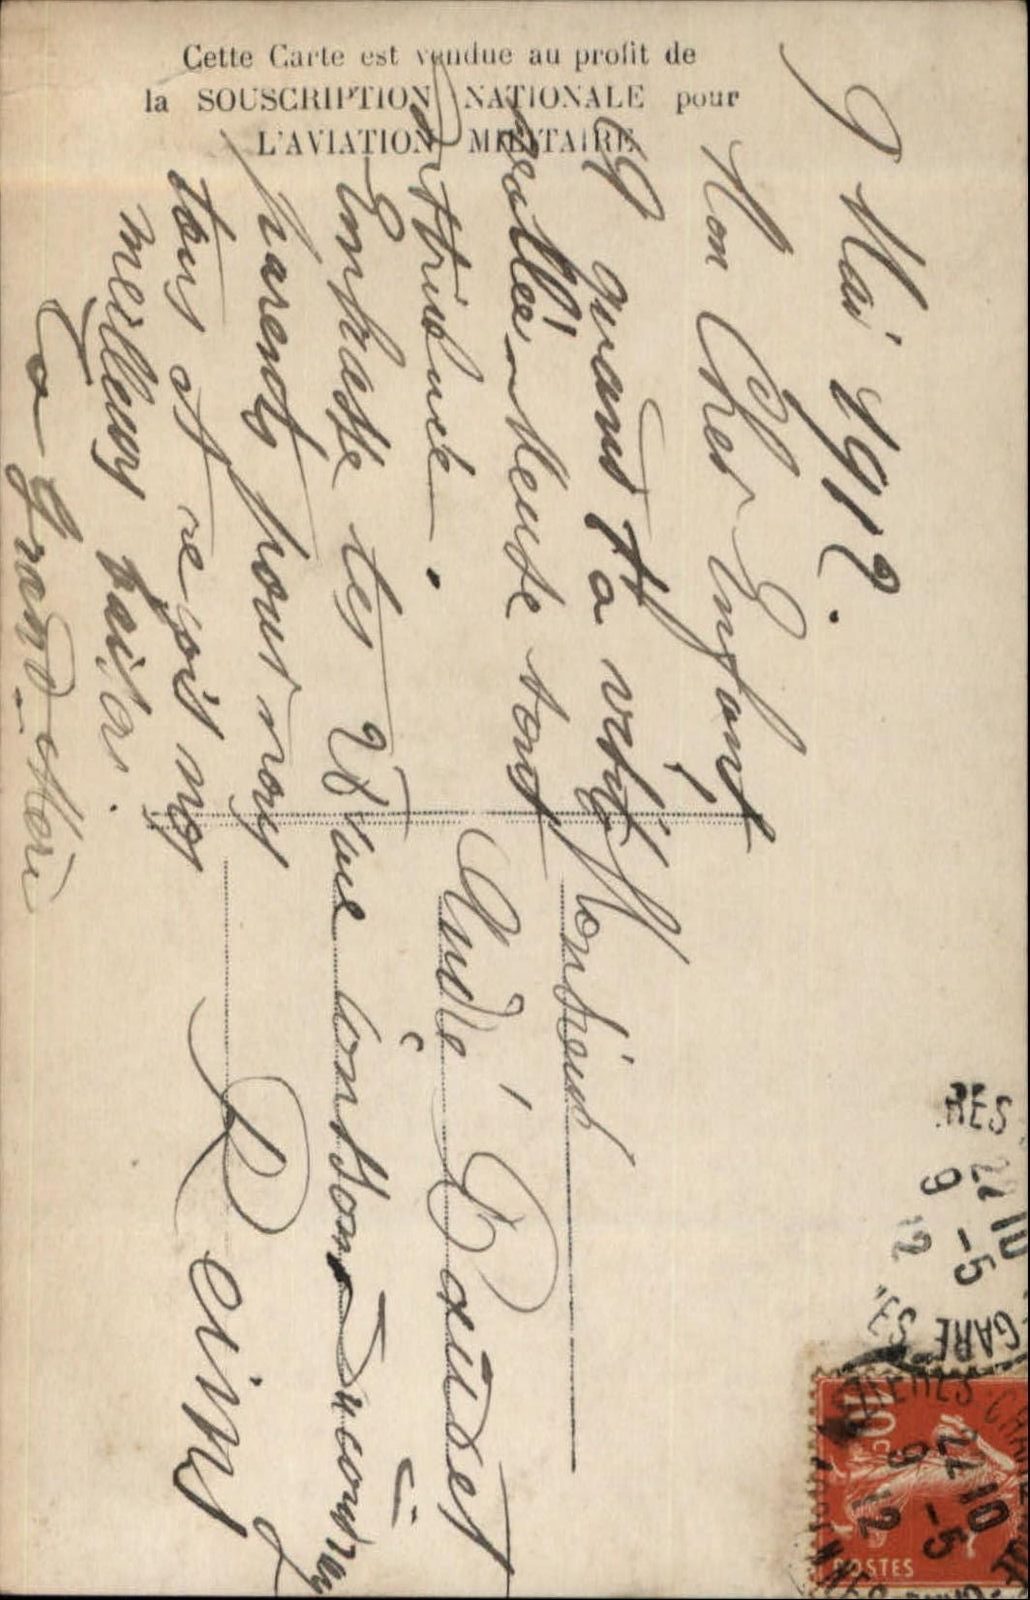 Cette Carte est vendue au profit de
la SOUSCRIPTION NATIONALE pour
L'AVIATION MILITAIRE
9 Mai 1912.
Mon Cher Enfant
quand ta
tout
attribué.
Embrasse tes
parents pour nous
tous et reçois nos
meilleurs baiser.
Ta Grand-Mère
Monsieur
André Baudet
28 rue
Reims
RES
22 10
9 -5
12
GARE
10c
22 10
9 -5
12
POSTES